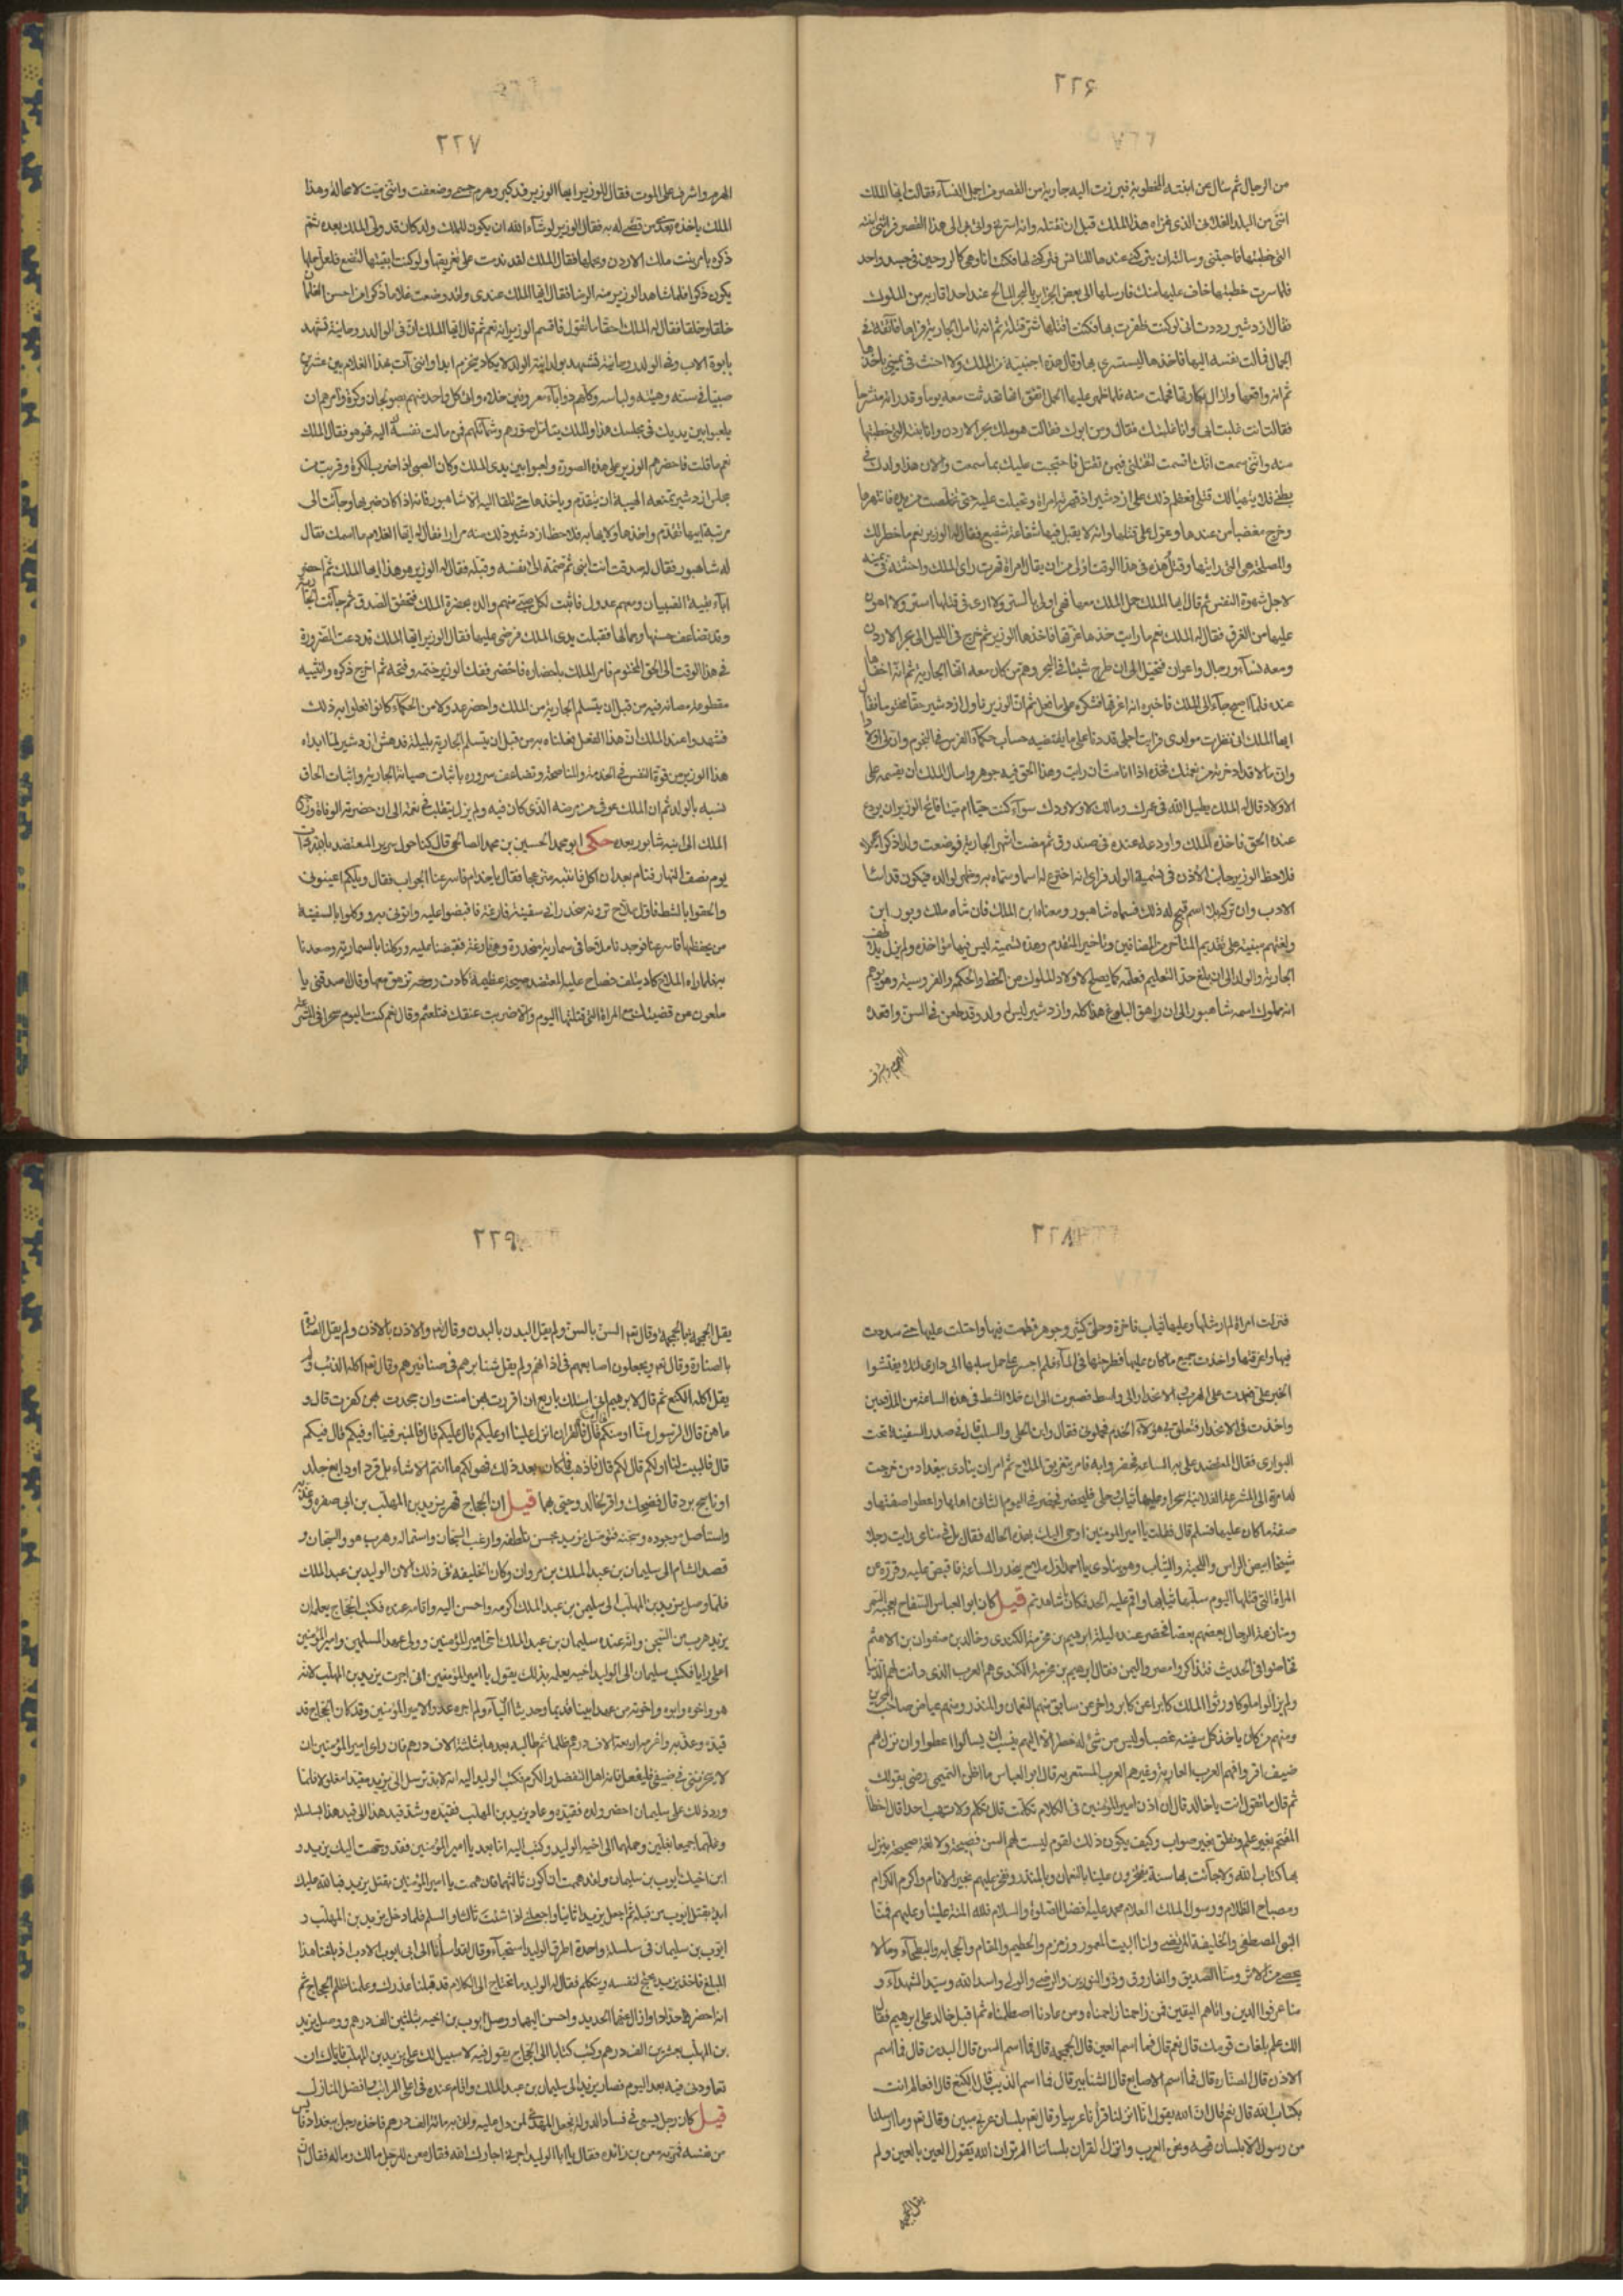 ٢٢٦
من الرجال ثم سال عن ابنته المخطوبة فبرزت اليه جارية من القصر من اجمل النساء فقالت ايها الملك
انني من البلد الفلاني الذي غزاه هذا الملك قبل ان تقتله وانه اسرني واتى بي الى هذا القصر فرأتني ابنته
التي خطبتها فاحبتني وسالته ان يتركني عندها للتانس فتركني لها فكنت انا وهي كالروحين في جسد واحد
فلما سيرت خطبتها خاف عليها منك فارسلها الى بعض الجزائر بالبحر المالح عند احد اقاربه من الملوك
فقال ازدشير وددت اني لو كنت ظفرت بها فكنت اقتلها شر قتلة ثم انه تامل الجارية فراها فائقة في
الجمال فمالت نفسه اليها فاخذها ليستسري بها وقال هذه اجنبية من الملك ولا احنث في يميني باخذها
ثم انه واقعها وازال بكارتها فحملت منه فلما ظهر عليها الحمل اتفق انها تحدثت معه يوما وقد راته منشرحا
فقالت انت غلبت ابي وانا غلبتك فقال ومن ابوك فقالت هو ملك بحر الاردن وانا بنته التي خطبتها
منه وانني سمعت انك اقسمت لتقتلني فيمن تقتل فاحتجبت عليك بما سمعت والان هذا ولدك في
بطني فلا يتهيأ لك قتلي فعظم ذلك على ازدشير اذ قهرته امراة وتحيلت عليه حتى تخلصت من يده فانتهرها
وخرج مغضبا من عندها وعول على قتلها وانه لا يقبل فيها شفاعة شفيع فقال له الوزير نعم ما خطر لك
والمصلحة هي التي رايتها وقتل هذه في هذا الوقت اولى من ان يقال امراة قهرت راى الملك واحنثته في يمينه
لاجل شهوة النفس ثم قال ايها الملك حمل الملك معها فهي اولى بالستر ولا ارى في قتلها استر ولا اهون
عليها من الغرق فقال له الملك نعم ما رايت خذها غرقها فاخذها الوزير ثم خرج في الليل الى بحر الاردن
ومعه نساء ورجال واعوان فتحيل الى ان طرح شيئا في البحر وهم من كان معه انها الجارية ثم انه اخفاها
عنده فلما اصبح جاء الى الملك فاخبره انه اغرقها فشكره على ما فعل ثم ان الوزير ناول ازدشير حقا مختوما فقال
ايها الملك اني نظرت مولدي فرايت اجلي قد دنا على ما يقتضيه حساب حكماء الفرس في النجوم وان لي اولادا
وان مالا قد ادخرته من نعمتك فخذه اذا انا مت ان رايت وهذا الحق فيه جوهر واسال الملك ان يقسمه على
الاولاد قال له الملك يطيل الله في عمرك ومالك لاولادك سواء كنت حيا ام ميتا فالح الوزير ان يودع
عنده الحق فاخذه الملك واودعه عنده في صندوق ثم مضت اشهر الجارية فوضعت ولدا ذكرا جميلا
فلاحظ الوزير جانب الادب في تسمية الولد فراى انه ان اخترع له اسما وسماه به وظهر لوالده فيكون قد اساء
الادب وان تركه بلا اسم قبح له ذلك فسماه شاهبور ومعناه ابن الملك فان شاه ملك وبور ابن
ولغتهم مبنية على تقديم المتاخر من المضافين وتاخير المتقدم وهذه تسمية ليس فيها مؤاخذه ولم يزل يلاطف
الجارية والولد الى ان بلغ حد التعليم فعلمه كما يصلح لاولاد الملوك من الخط والحكمة والفروسية وهو يوهم
انه مملوك اسمه شاهبور الى ان راهق البلوغ هذا كله وازدشير ليس له ولد وقد طعن في السن واقعده
الهرم واشرف
٢٢٧
الهرم واشرف على الموت فقال للوزير ايها الوزير قد كبر وهرم جسمي وضعفت وانني ميت لا محالة وهذا
الملك ياخذه بعدي من قضي له به فقال الوزير لو شاء الله ان يكون للملك ولد كان قد ولى الملك بعده ثم
ذكره بامر بنت ملك الاردن وحملها فقال الملك لقد ندمت على تغريقها ولو كنت ابقيتها لتضع فلعل حملها
يكون ذكرا فلما شاهد الوزير منه الرضا فقال ايها الملك عندي ولقد وضعت غلاما ذكرا من احسن الغلمان
خلقا وخلقا فقال له الملك احقا ما تقول فاقسم الوزير انه نعم ثم قال ايها الملك ان في الوالد روحانية تشهد
بابوة الاب وفي الولد روحانية تشهد بولدانية الولد لا يكاد ينخرم ابدا وانني آت بهذا الغلام بين عشرين
صبيا في سنه وهيئته ولباسه وكلهم ذوا آباء معروفين خلاه وان كل واحد منهم بصولجان وكرة وآمرهم ان
يلعبوا بين يديك في مجلسك هذا والملك يتامل صورهم وشمائلهم فمن مالت نفسه اليه فهو هو فقال الملك
نعم ما قلت فاحضرهم الوزير على هذه الصورة ولعبوا بين يدي الملك وكان الصبي اذا ضرب الكرة وقربت من
مجلس ازدشير تمنعه الهيبة ان يتقدم وياخذها حتى تلقا اليه الا شاهبور فانه اذا كان ضربها وجاءت الى
مرتبة ابيها تقدم واخذها ولا يهابه فلاحظ ازدشير ذلك منه مرارا فقال له ايها الغلام ما اسمك فقال
له شاهبور فقال له صدقت انت ابني ثم ضمه الى نفسه وقبله فقال له الوزير هو هذا ايها الملك ثم احضر
اباء بقية الصبيان ومعهم عدول فاثبت لكل صبي منهم والده بحضرة الملك فتحقق الصدق ثم جاءت الجارية
وقد تضاعف حسنها وجمالها فقبلت يدي الملك فرضي عليها فقال الوزير ايها الملك قد دعت الضرورة
في هذا الوقت الى الحق المختوم فامر الملك باحضاره فاحضر ففك الوزير ختمه وفتحه ثم اخرج ذكره وانثييه
مقطوعة مصانه فيه من قبل ان يتسلم الجارية من الملك واحضر عدولا من الحكماء كانوا فعلوا به ذلك
فشهدوا عند الملك ان هذا الفعل فعلناه به من قبل ان يتسلم الجارية بليلة فدهش ازدشير لما ابداه
هذا الوزير من قوة النفس في الخدمة والمناصحة وتضاعف سروره باثبات صيانة الجارية واثبات الحاق
نسبه بالولد ثم ان الملك عوفي من مرضه الذي كان فيه ولم يزل يتقلب في نعمة الى ان حضرته الوفاة ورجع
الملك الى ابنه شابور بعده حكى ابو محمد الحسين بن محمد الصالحي قال كنا حول سرير المعتضد بالله ذات
يوم نصف النهار فنام بعد ان اكل فانتبه منزعجا فقال يا خدام فاسرعنا الجواب فقال ويلكم اعينوني
والحقوا بالشط فاول ملاح ترونه منحدرا في سفينة فارغة فاقبضوا عليه واتوني به ووكلوا بالسفينة
من يحفظها فاسرعنا فوجدنا ملاحا في سمارية منحدرة وهي فارغة فقبضنا عليه ووكلنا بالسمارية وصعدنا
به فلما راه الملاح كاد يتلف فصاح عليه المعتضد صيحة عظيمة كادت روحه تزهق معها وقال اصدقني يا
ملعون عن قضيتك مع المراة التي قتلتها اليوم والا ضربت عنقك فتلعثم وقال نعم كنت اليوم سحرا في المشرعة
٢٢٨
فنزلت امراة لم ار مثلها وعليها ثياب فاخرة وحلي كثير وجوهر فطمعت فيها واحتلت عليها حتى سددت
فيها واغرقتها واخذت جميع ما كان عليها ثم طرحتها في الماء فلم اجسر على حمل سلبها الى داري لئلا يفتشوا
الخبر علي فعزمت على الهرب والانحدار الى واسط فصبرت الى ان خلا الشط في هذه الساعة من الملاحين
واخذت في الانحدار فتعلق بي هؤلاء الخدم فحملوني فقال واين الحلي والسلب قال في صدر السفينة تحت
البواري فقال المعتضد علي به الساعة فحضروا به فامر بتغريق الملاح ثم امر ان ينادى ببغداد من خرجت
له امراة الى المشرعة الفلانية سحرا وعليها ثياب وحلي فليحضر فحضر في اليوم الثاني اهلها واعطوا صفتها و
صفة ما كان عليها فتسلم قال فقلت يا امير المومنين اوحي اليك بهذه الحالة فقال بل في منامي رايت رجلا
شيخا ابيض الراس واللحية والثياب وهو ينادي يا احمد اول ملاح ينحدر الساعة فاقبض عليه وقرره عن
المراة التي قتلها اليوم سلبها ثيابها واقم عليه الحد فكان ما شاهدتم قيل كان ابو العباس السفاح يعجبه السمر
ومنازعة الرجال بعضهم بعضا فحضر عنده ليلة ابرهيم بن مخرمة الكندي وخالد بن صفوان بن الاهتم
فخاضوا في الحديث فتذاكروا مضر واليمن فقال ابرهيم بن مخرمة الكندي هم العرب الذي دانت لهم الدنيا
ولم يزالوا ملوكا ورثوا الملك كابرا عن كابر واخر عن سابق منهم النعمان والمنذر ومنهم عياض صاحب البحرين
ومنهم من كان ياخذ كل سفينة غصبا وليس من شئ له خطر الا اليهم ينسب ان يسالوا اعطوا وان نزل بهم
ضيف اقروا فهم العرب العاربة وغيرهم العرب المستعربه قال ابو العباس ما اظن التميمي رضي بقولك
ثم قال ما تقول انت يا خالد قال ان اذن امير المومنين في الكلام تكلمت قال تكلم ولا تهب احدا قال اخطا
المقتحم بغير علم ونطق بغير صواب وكيف يكون ذلك لقوم ليست لهم السن فصيحة ولا لغة صحيحة ينزل
بها كتاب الله ولا جاءت بها سنة يفخرون علينا بالنعمان وبالمنذر ونفخر عليهم بخير الانام واكرم الكرام
ومصباح الظلام ورسول الملك العلام محمد عليه افضل الصلوة والسلام فلله المنة علينا وعليهم فمنا
النبي المصطفى والخليفة المرتضى ولنا البيت المعمور وزمزم والحطيم والمقام والحجابه والبطحاء ومالا
يحصى من المآثر ومنا الصديق والفاروق وذو النورين والرضي والولي واسد الله وسيد الشهداء و
منا عرفوا الدين واتاهم اليقين فمن زاحمنا زاحمناه ومن عادانا اصطلمناه ثم اقبل خالد على ابرهيم فقال
الك علم بلغات قومك قال نعم قال فما اسم العين قال الجحجمه قال فما اسم السن قال البدن قال فما اسم
الاذن قال الصناره قال فما اسم الاصابع قال الشناتر قال فما اسم الذيب قال الكنع قال افعالم انت
بكتاب الله قال نعم قال ان الله يقول انا انزلناه قرآنا عربيا وقال تعالى بلسان عربي مبين وقال تعالى وما ارسلنا
من رسول الا بلسان قومه ونحن العرب وانزل القران بلساننا الم تر ان الله يقول العين بالعين ولم
يقل الجحجمه
٢٢٩
يقل الجحجمه بالجحجمه وقال تعالى السن بالسن ولم يقل البدن بالبدن وقال تعالى والاذن بالاذن ولم يقل الصناره
بالصنارة وقال تعالى ويجعلون اصابعهم في اذانهم ولم يقل شناترهم في صناراتهم وقال تعالى اكله الذئب ولم
يقل اكله الكنع ثم قال لابرهيم اني اسئلك باربع ان اقررت بهن امنت وان جحدت بهن كفرت قال و
ما هن قال الرسول منا او منكم قال منكم قال فالقران انزل علينا او عليكم قال عليكم قال فالمنبر فينا او فيكم قال فيكم
قال فالبيت لنا او لكم قال لكم قال فاذهب فما كان بعد ذلك فهو لكم ما انتم الا سائس قرد او دابغ جلد
او ناسج برد قال فضحك واقر لخالد وحباهما قيل ان الحجاج قهر يزيد بن المهلب بن ابي صفره وعذبه
واستاصل موجوده وسجنه فتوصل يزيد بحسن تلطفه وارغب السجان واستماله وهرب هو والسجان و
قصد الشام الى سليمان بن عبد الملك بن مروان وكان الخليفه في ذلك الان الوليد بن عبد الملك
فلما وصل يزيد بن المهلب الى سليمن بن عبد الملك اكرمه واحسن اليه واقامه عنده فكتب الحجاج يعلمه ان
يزيد هرب من السجن وانه عند سليمان بن عبد الملك اخي امير المؤمنين وولي عهد المسلمين وامير المؤمنين
اعلى رايا فكتب سليمان الى الوليد اخيه يعلمه بذلك يقول يا امير المؤمنين اني اجرت يزيد بن المهلب لانه
هو واخوه وابوه واخوته من عهد ابينا قديما وحديثا الياء ولم اجر عدوا لامير المؤمنين وقد كان الحجاج قد
قيده وعذبه واغرمه اربعة الاف درهم ظلما ثم طالبه بعدها بثلثة الاف درهم فان راى امير المؤمنين ان
لا يخزيني في ضيفي فليفعل فانه اهل الفضل والكرم فكتب الوليد اليه انه لابد ترسل الى يزيد مقيدا مغلولا فلما
ورد ذلك على سليمان احضر ولده فقيده ودعا يزيد بن المهلب فقيده وشد قيد هذا الى قيد هذا بسلسلة
وغلهما جميعا بغلين وحملهما الى اخيه الوليد وكتب اليه اما بعد يا امير المؤمنين فقد وجهت اليك يزيد و
ابن اخيك ايوب بن سليمان ولقد هممت ان اكون ثالثهما فان هممت يا امير المؤمنين بقتل يزيد فبالله عليك
ابدا بقتل ايوب من قبله ثم اجعل يزيدا ثانيا واجعلني اذا شئت ثالثا والسلم فلما دخل يزيد بن المهلب و
ايوب بن سليمان في سلسلة واحدة اطرق الوليد استحياء وقال لقد اسأنا الى ابي ايوب اذ بلغنا هذا
المبلغ فاخذ يزيد يحتج لنفسه ويتكلم فقال له الوليد ما تحتاج الى الكلام قد قبلنا عذرك وعلمنا ظلم الحجاج ثم
انه احضر حدادا وازال عنهما الحديد واحسن اليهما ووصل ايوب بن اخيه بثلثين الف درهم ووصل يزيد
بن المهلب بعشرين الف درهم وكتب كتابا الى الحجاج يقول فيه لا سبيل لك على يزيد بن المهلب فاياك ان
تعاودني فيه بعد اليوم فصار يزيد الى سليمان بن عبد الملك واقام عنده في اعلى المراتب وافضل المنازل
قيل كان رجل يسعى في فساد الدولة فجعل المهدي لمن دل عليه واتى به مائة الف درهم فاخذه رجل ببغداد فايس
من نفسه فمر به معن بن زائده فقال يا ابا الوليد اجرني اجارك الله فقال معن للرجل مالك وماله فقال ان